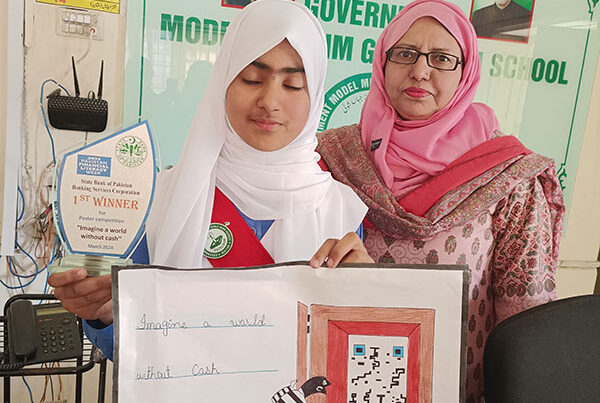 GOVERN
MODEL
SCHOOL
PAKISTAN
FINANCIAL LITERACY
WEEK
State Bank of Pakistan
Banking Services Corporation
1ST WINNER
for
Poster competition
"Imagine a world
without cash"
March 2024
Imagine a world
without Cash